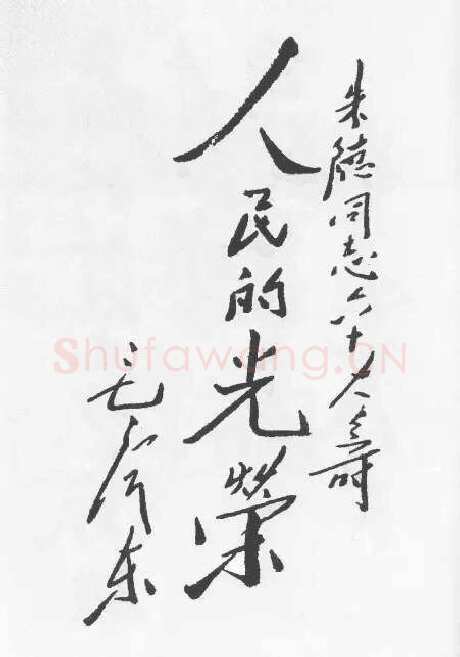 朱德同志六十大寿
人民的光榮
毛泽东
Shufawang.CN